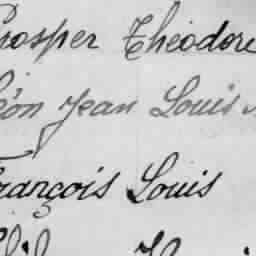 Prosper Théodore
Léon Jean Louis
François Louis